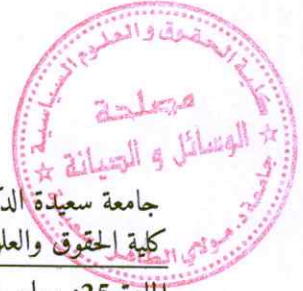 كلية الحقوق و العلوم السياسية
مصلحة
الوسائل و الصيانة
جامعة د. مولاي الطاهر
جامعة سعيدة الد
كلية الحقوق والعلو